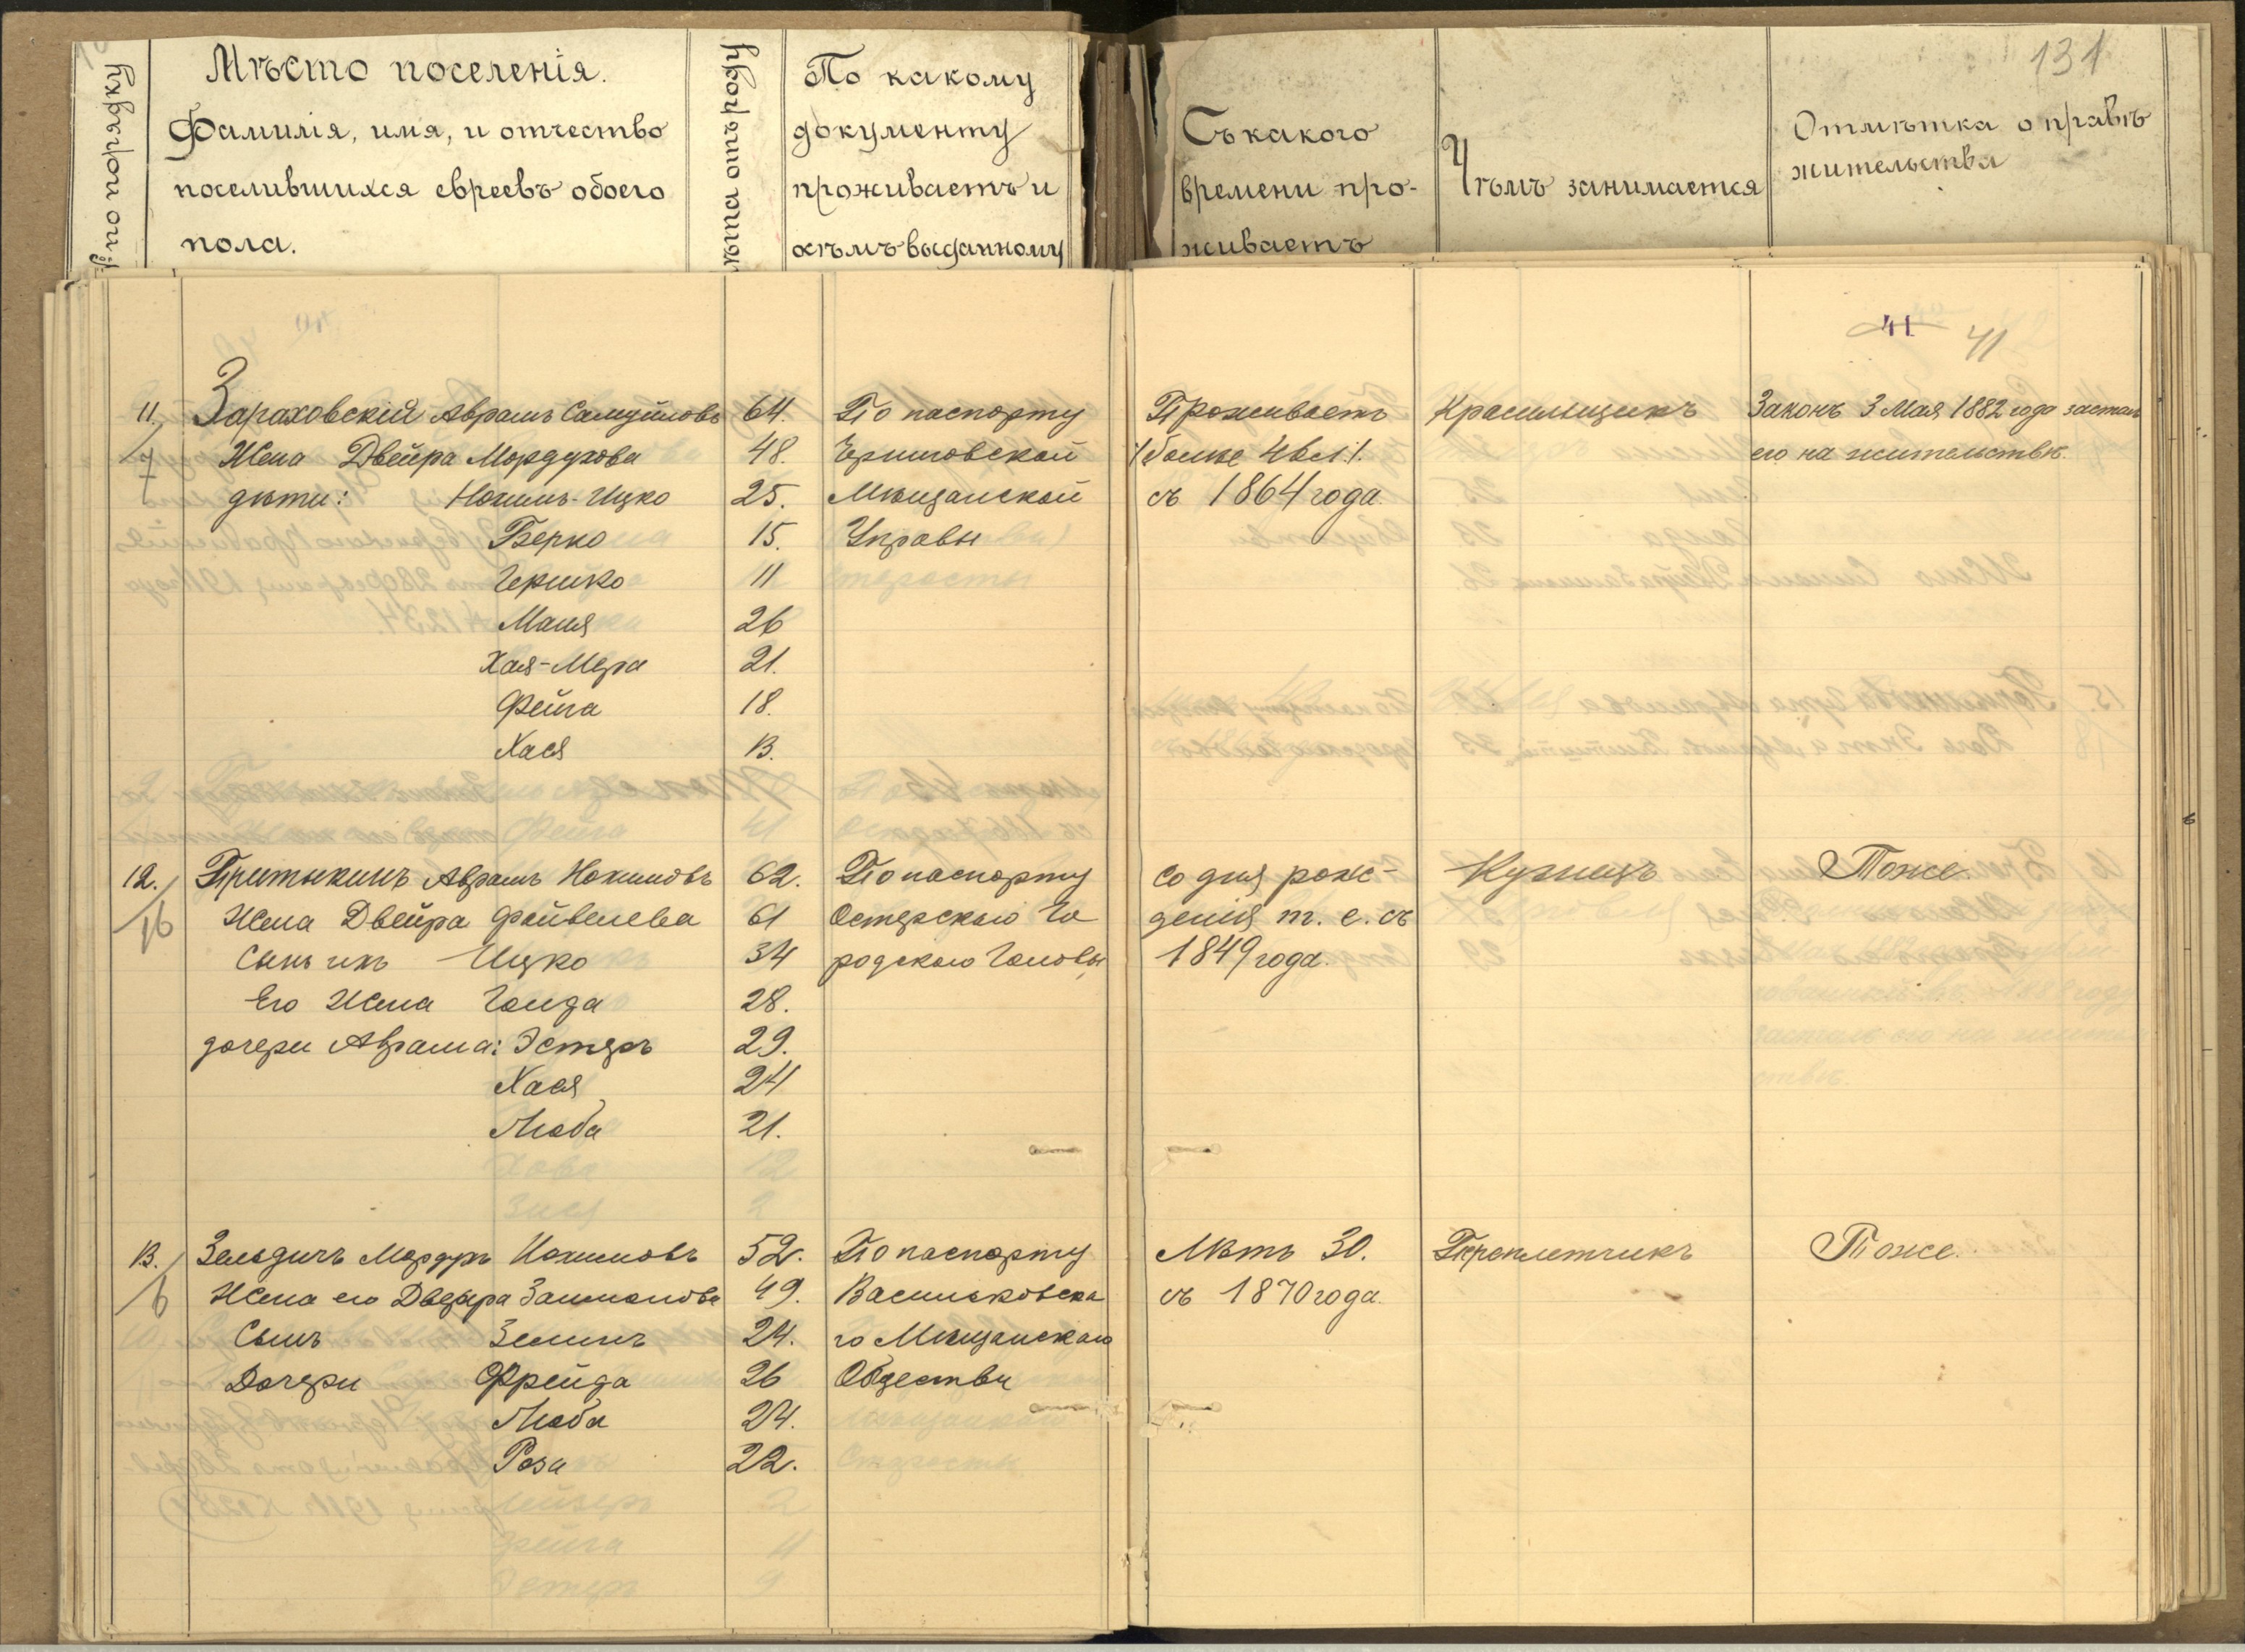 № по порядку
Мѣсто поселенія.
Фамилія, имя, и отчество
поселившихся евреевъ обоего
пола.
лѣта отъ роду
По какому
документу
проживаетъ и
кѣмъ выданному
Съ какого
времени про-
живаетъ
Чѣмъ занимается
Отмѣтка о правѣ
жительства
131
41
41
11. Зараховскій Аврамъ Самуйловъ 64. По паспорту Проживаетъ Красильщикъ Законъ 3 Мая 1882 года засталъ
7 Жена Двейра Мордухова 48. Черниговской более его на жительствѣ.
дѣти: Нохимъ-Ицко 25. Мѣщанской съ 1864 года.
Берко 15. Управы
Гершко 11
Маня 26
Хая-Мера 21.
Фейга 18.
Хася 13.
12. Притыкинъ Аврамъ Нохимовъ 62. По паспорту со дня рож- Кузнецъ Тоже.
16 Жена Двейра Файвелева 61 Остерскаго Го денія т. е. съ
Сынъ ихъ Ицко 34 родского Головы 1849 года.
Его Жена Голда 28.
дочери Аврама: Эстеръ 29.
Хася 24
Люба 21.
13. Зельдичъ Мордухъ Нохимовъ 52. По паспорту Лѣтъ 30. Переплетчикъ Тоже.
6 Жена его Двейра Залманова 49. Васильковска съ 1870 года.
Сынъ Зеликъ 24. го Мѣщанскаго
Дочери Фрейда 26 Общества
Люба 24.
Роза 22.